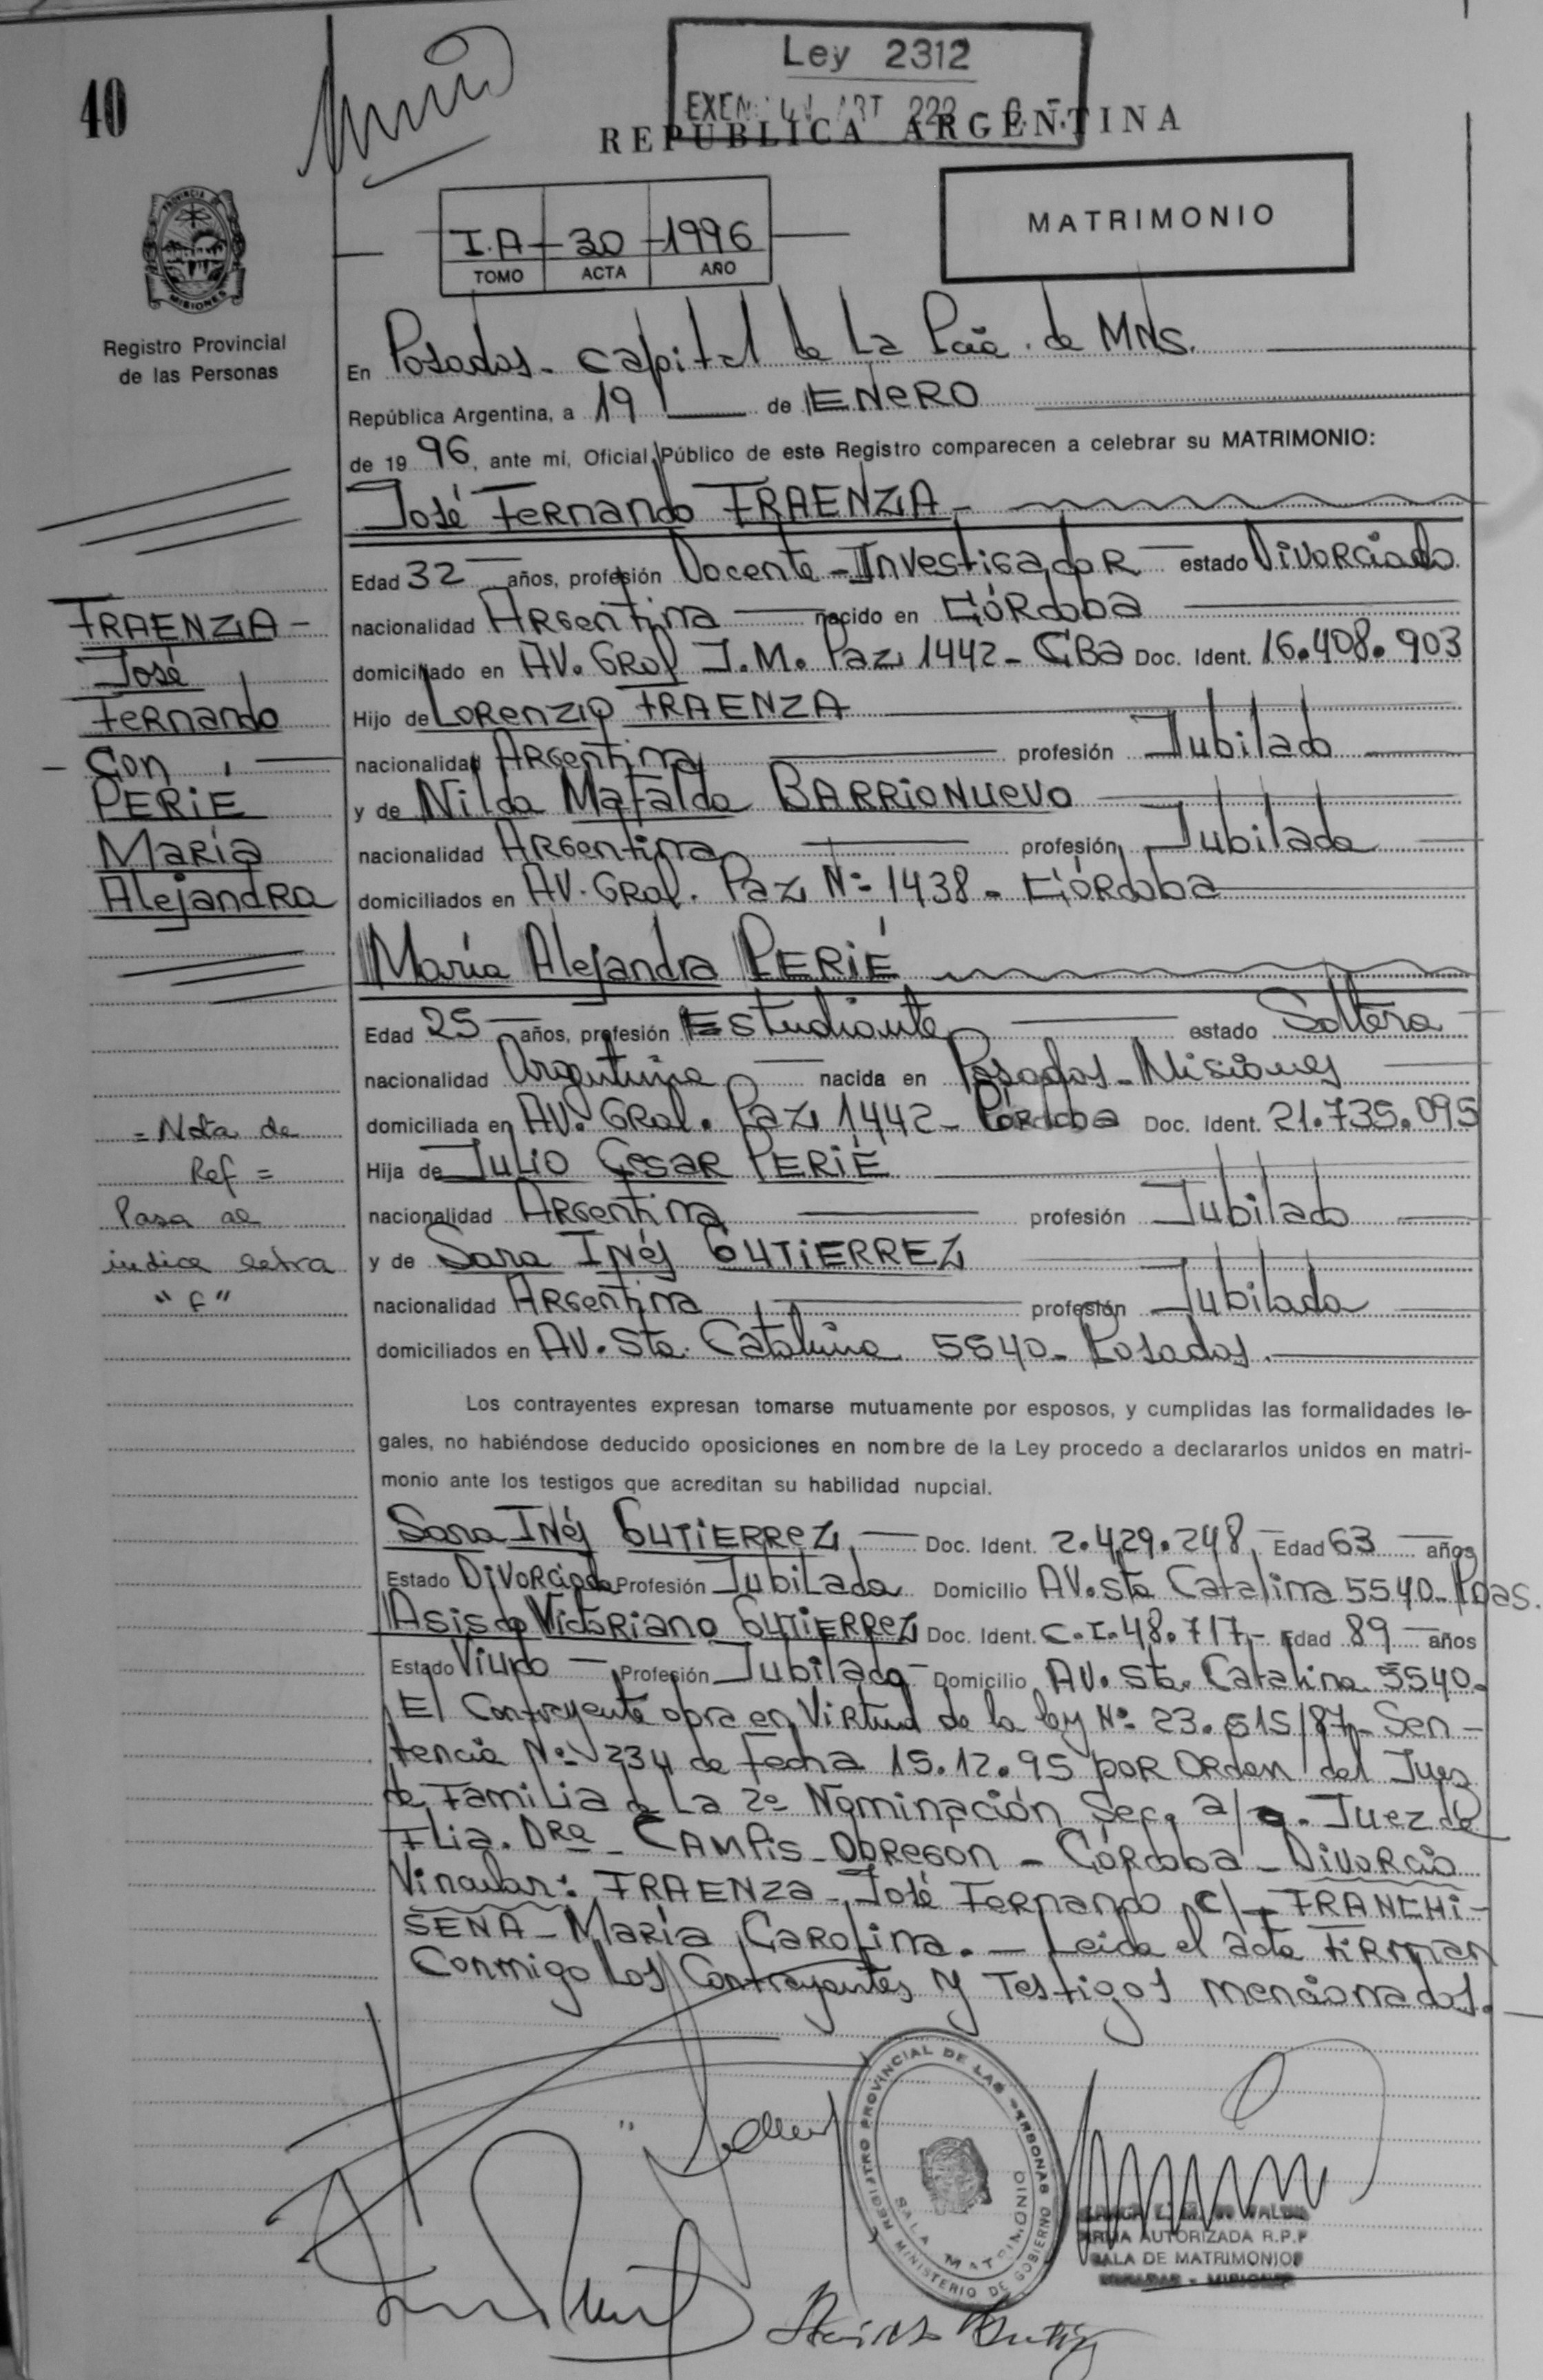 40
Ley 2312
ART 222
REPUBLICA ARGENTINA
PROVINCIA DE
MISIONES
Registro Provincial
de las Personas
I.A - 30 - 1996
TOMO ACTA AÑO
MATRIMONIO
En Posadas - capital de La Pcia. de MNS.
República Argentina, a 19 de ENERO
de 1996, ante mí, Oficial Público de este Registro comparecen a celebrar su MATRIMONIO:
José Fernando FRAENZA -
Edad 32 años, profesión Docente - Investigador estado Divorciado
nacionalidad Argentina nacido en Córdoba
domiciliado en AV. Gral J.M. Paz 1442 - CBA Doc. Ident. 16.408.903
Hijo de Lorenzo FRAENZA
nacionalidad Argentina profesión Jubilado
y de Nilda Mafalda BARRIONUEVO
nacionalidad Argentina profesión Jubilada
domiciliados en AV. Gral. Paz Nº 1438 - Córdoba
FRAENZA -
José
Fernando
- Con -
PERIÉ
María
Alejandra
María Alejandra PERIÉ
Edad 25 años, profesión Estudiante estado Soltera
nacionalidad Argentina nacida en Posadas - Misiones
domiciliada en AV. Gral. Paz 1442 - Córdoba Doc. Ident. 21.735.095
Hija de Julio Cesar PERIÉ
nacionalidad Argentina profesión Jubilado
y de Sara Inés GUTIERREZ
nacionalidad Argentina profesión Jubilada
domiciliados en AV. Sta. Catalina 5540 - Posadas.
= Nota de
Ref =
Pasa al
indice letra
"F"
Los contrayentes expresan tomarse mutuamente por esposos, y cumplidas las formalidades le-
gales, no habiéndose deducido oposiciones en nombre de la Ley procedo a declararlos unidos en matri-
monio ante los testigos que acreditan su habilidad nupcial.
Sara Inés GUTIERREZ Doc. Ident. 2.429.248 Edad 63 años
Estado Divorciada Profesión Jubilada Domicilio AV. Sta Catalina 5540 - Pdas.
Asisclo Victoriano GUTIERREZ Doc. Ident. C.I. 48.717 - Edad 89 años
Estado Viudo - Profesión Jubilado - Domicilio AV. Sta. Catalina 5540.
El Contrayente obra en Virtud de la ley Nº 23.515/87 - Sen-
tencia Nº 234 de Fecha 15.12.95 por Orden del Juez
de Familia de La 2º Nominación Sec. a/c. Juez de
Flia. Dra - CAMPIS - OBREGON - Córdoba - Divorcio
Vincular: FRAENZA - José Fernando c/ FRANCHI-
SENA - María Carolina. - Leida el acta Firman
Conmigo Los Contrayentes y Testigos mencionados.
REGISTRO PROVINCIAL DE LAS PERSONAS
MINISTERIO DE GOBIERNO
SALA MATRIMONIO
FIRMA AUTORIZADA R.P.P
SALA DE MATRIMONIOS
POSADAS - MISIONES